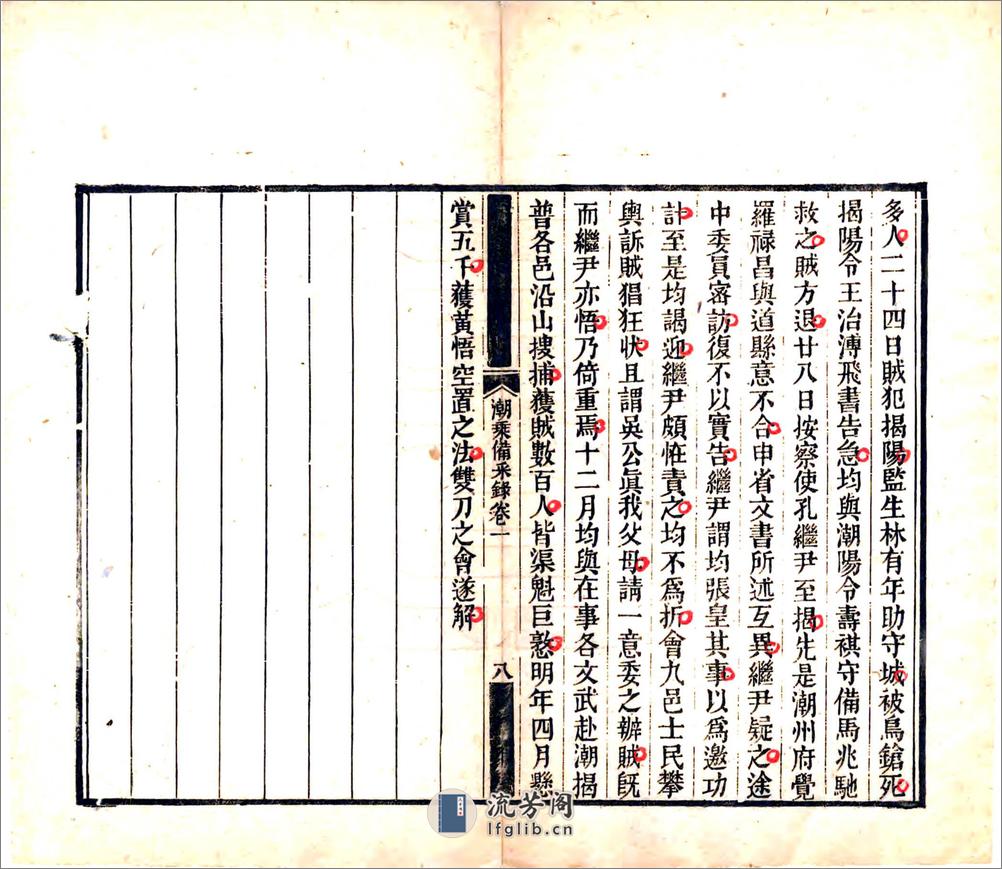 多人二十四日賊犯揭陽監生林有年助守城被鳥鎗死
揭陽令王治溥飛書告急均與潮陽令壽祺守備馬兆馳
救之賊方退廿八日按察使孔繼尹至揭先是潮州府覺
羅祿昌與道縣意不合申省文書所述互異繼尹疑之途
中委員密訪復不以實告繼尹謂均張皇其事以為邀功
計至是均謁迎繼尹頗怪責之均不為折會九邑士民攀
輿訴賊猖狂狀且謂吳公眞我父母請一意委之辦賊旣
而繼尹亦悟乃倚重焉十二月均與在事各文武赴潮揭
普各邑沿山搜捕獲賊數百人皆渠魁巨憝明年四月懸
潮乘備采錄卷一
八
賞五千獲黃悟空置之法雙刀之會遂解
流芳阁
lfglib.cn